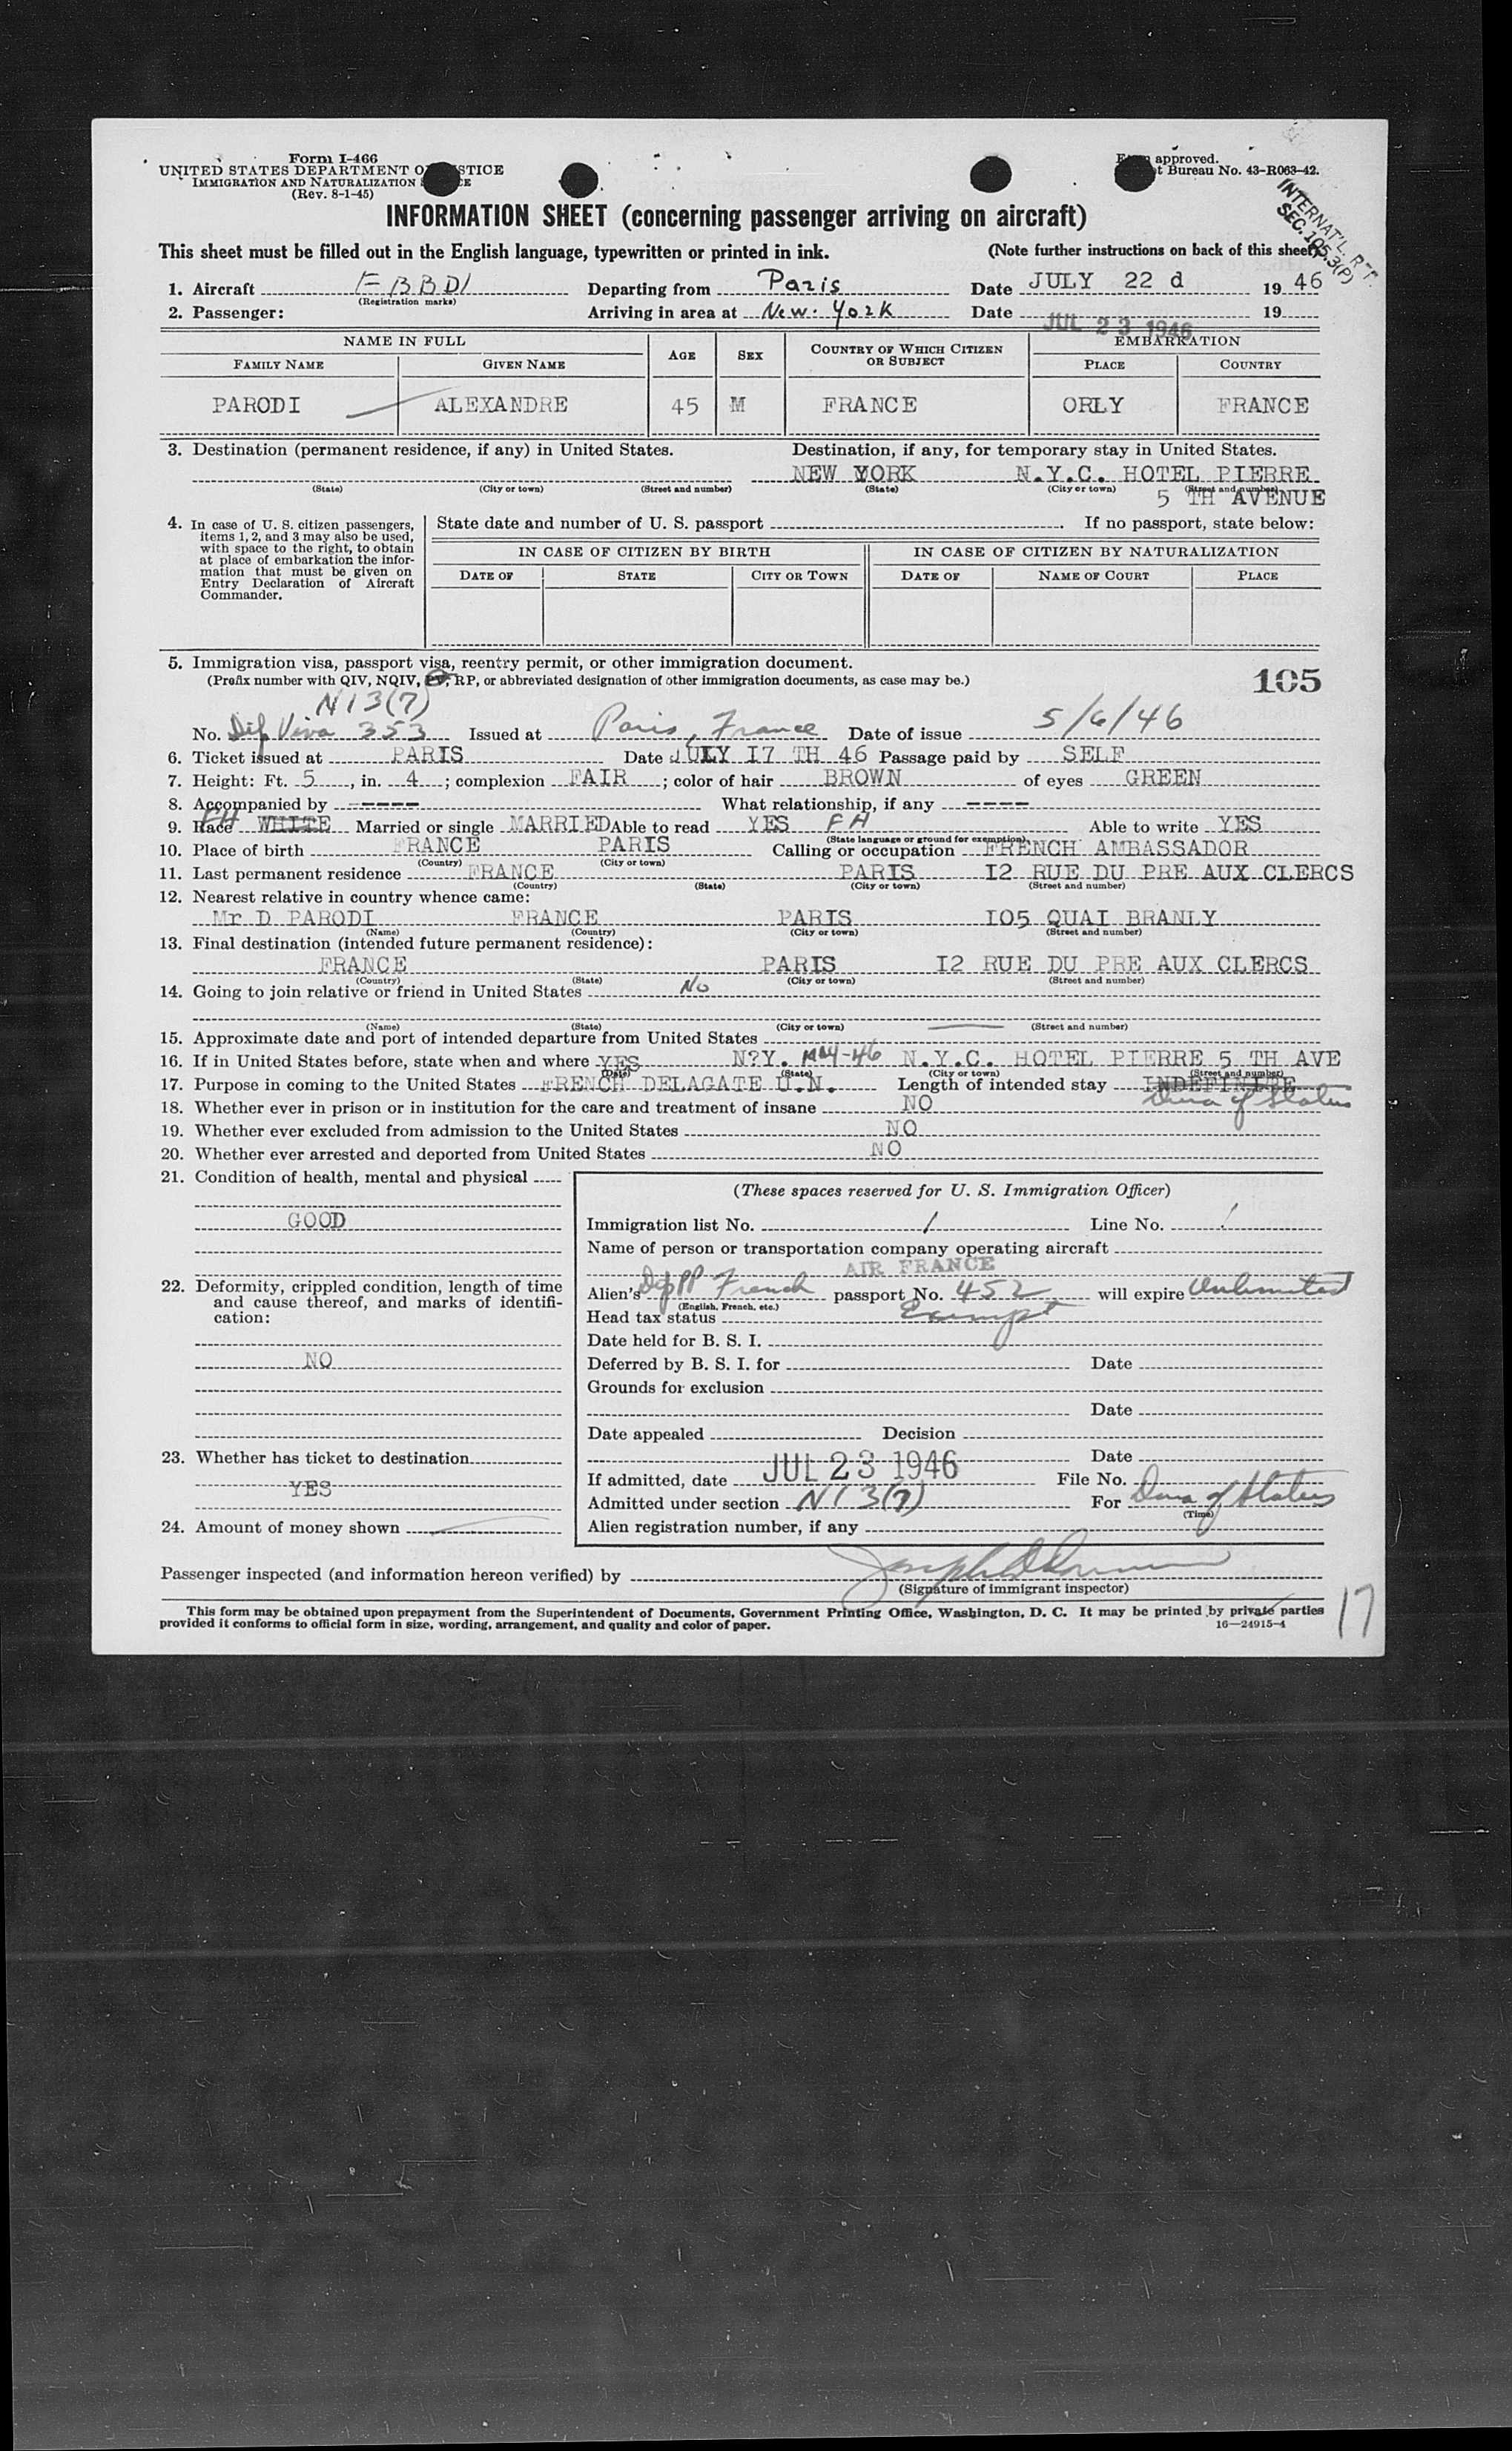 Form I-466
UNITED STATES DEPARTMENT O STICE
IMMIGRATION AND NATURALIZATION CE
(Rev. 8-1-45)
approved.
t Bureau No. 43-R063-42.
INTERNAT'L. R'T.
SEC. 105.3(P)
INFORMATION SHEET (concerning passenger arriving on aircraft)
This sheet must be filled out in the English language, typewritten or printed in ink. (Note further instructions on back of this sheet)
1. Aircraft F BBDI Departing from Paris Date JULY 22 d 19 46
(Registration marks)
2. Passenger: Arriving in area at New-York Date JUL 23 1946 19
NAME IN FULL AGE SEX COUNTRY OF WHICH CITIZEN OR SUBJECT EMBARKATION
FAMILY NAME GIVEN NAME PLACE COUNTRY
PARODI ALEXANDRE 45 M FRANCE ORLY FRANCE
3. Destination (permanent residence, if any) in United States. Destination, if any, for temporary stay in United States.
NEW YORK N.Y.C. HOTEL PIERRE
(State) (City or town) (Street and number) (State) (City or town) (Street and number)
5 TH AVENUE
4. In case of U. S. citizen passengers, items 1, 2, and 3 may also be used, with space to the right, to obtain at place of embarkation the information that must be given on Entry Declaration of Aircraft Commander.
State date and number of U. S. passport . If no passport, state below:
IN CASE OF CITIZEN BY BIRTH IN CASE OF CITIZEN BY NATURALIZATION
DATE OF STATE CITY OR TOWN DATE OF NAME OF COURT PLACE
5. Immigration visa, passport visa, reentry permit, or other immigration document.
(Prefix number with QIV, NQIV, PV, RP, or abbreviated designation of other immigration documents, as case may be.)
105
N I 3(7)
No. Dip Visa 353 Issued at Paris, France Date of issue 5/6/46
6. Ticket issued at PARIS Date JULY I7 TH 46 Passage paid by SELF
7. Height: Ft. 5, in. 4; complexion FAIR; color of hair BROWN of eyes GREEN
8. Accompanied by ----- What relationship, if any ----
9. Race WHITE FH Married or single MARRIED Able to read YES FH Able to write YES
(State language or ground for exemption)
10. Place of birth FRANCE PARIS Calling or occupation FRENCH AMBASSADOR
(Country) (City or town)
11. Last permanent residence FRANCE PARIS I2 RUE DU PRE AUX CLERCS
(Country) (State) (City or town) (Street and number)
12. Nearest relative in country whence came:
Mr D PARODI FRANCE PARIS I05 QUAI BRANLY
(Name) (Country) (City or town) (Street and number)
13. Final destination (intended future permanent residence):
FRANCE PARIS I2 RUE DU PRE AUX CLERCS
(Country) (State) (City or town) (Street and number)
14. Going to join relative or friend in United States No
(Name) (State) (City or town) (Street and number)
15. Approximate date and port of intended departure from United States
16. If in United States before, state when and where YES N?Y. MAY-46 N.Y.C. HOTEL PIERRE 5 TH AVE
(Date) (State) (City or town) (Street and number)
17. Purpose in coming to the United States FRENCH DELAGATE U.N. Length of intended stay INDEFINITE
Dura of Status
18. Whether ever in prison or in institution for the care and treatment of insane NO
19. Whether ever excluded from admission to the United States NO
20. Whether ever arrested and deported from United States NO
21. Condition of health, mental and physical
GOOD
22. Deformity, crippled condition, length of time and cause thereof, and marks of identification:
NO
23. Whether has ticket to destination
YES
24. Amount of money shown
(These spaces reserved for U. S. Immigration Officer)
Immigration list No. 1 Line No. 1
Name of person or transportation company operating aircraft
AIR FRANCE
Alien's Dip PP French passport No. 452 will expire Unlimited
(English, French, etc.)
Head tax status Exempt
Date held for B. S. I.
Deferred by B. S. I. for Date
Grounds for exclusion
Date
Date appealed Decision
Date
If admitted, date JUL 23 1946 File No.
Admitted under section N I 3(7) For Dura of Status
(Time)
Alien registration number, if any
Passenger inspected (and information hereon verified) by
(Signature of immigrant inspector)
This form may be obtained upon prepayment from the Superintendent of Documents, Government Printing Office, Washington, D. C. It may be printed by private parties
provided it conforms to official form in size, wording, arrangement, and quality and color of paper. 16—24915-4
17